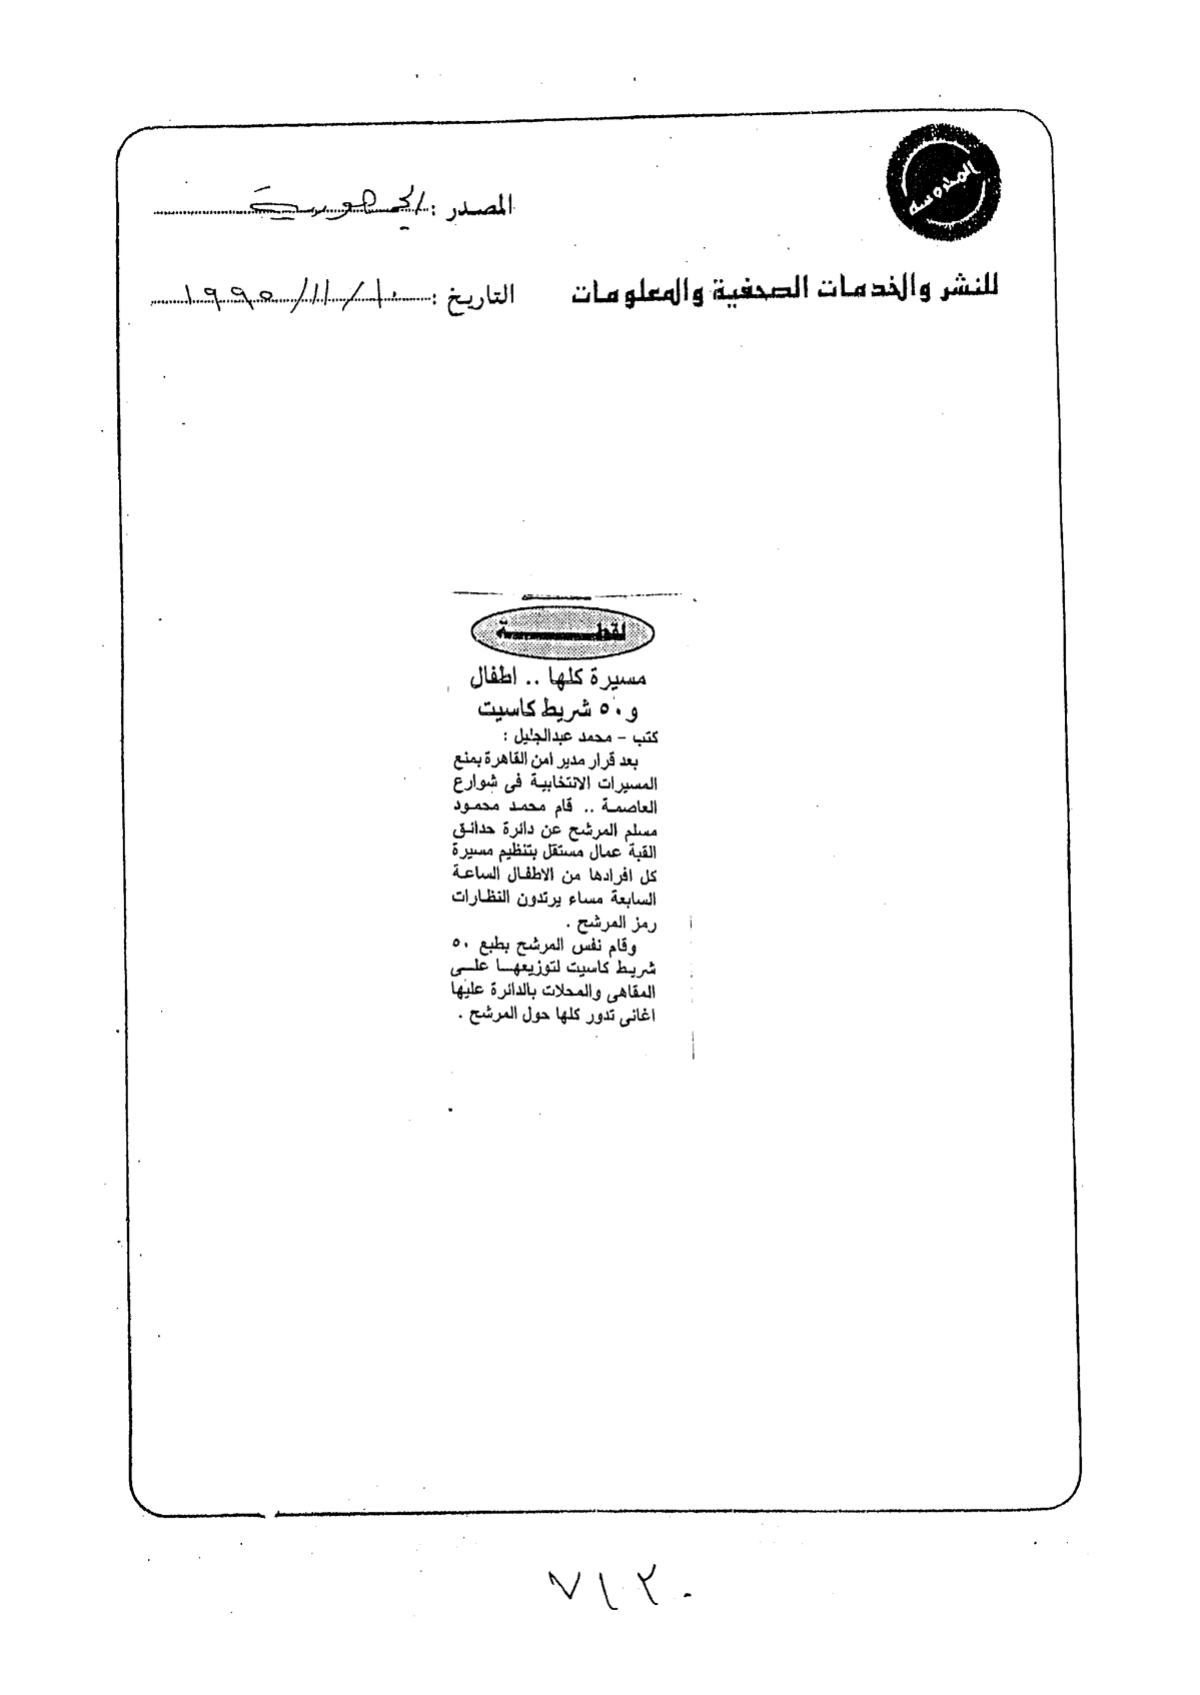 المحروسة
المصدر : الجمهورية
للنشر والخدمات الصحفية والمعلومات
التاريخ : ١٩٩٥/١١/١٠
لقطة
مسيرة كلها .. اطفال
و٥٠ شريط كاسيت
كتب - محمد عبدالجليل :
بعد قرار مدير امن القاهرة بمنع
المسيرات الانتخابية فى شوارع
العاصمة .. قام محمد محمود
مسلم المرشح عن دائرة حدائق
القبة عمال مستقل بتنظيم مسيرة
كل افرادها من الاطفال الساعة
السابعة مساء يرتدون النظارات
رمز المرشح .
وقام نفس المرشح بطبع ٥٠
شريط كاسيت لتوزيعها على
المقاهى والمحلات بالدائرة عليها
اغانى تدور كلها حول المرشح .
٧١٢٠